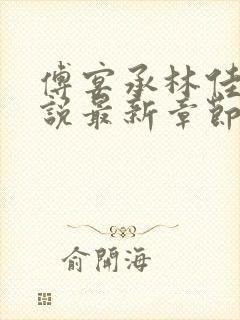 傅宴承林佳
說最新章節
俞開海